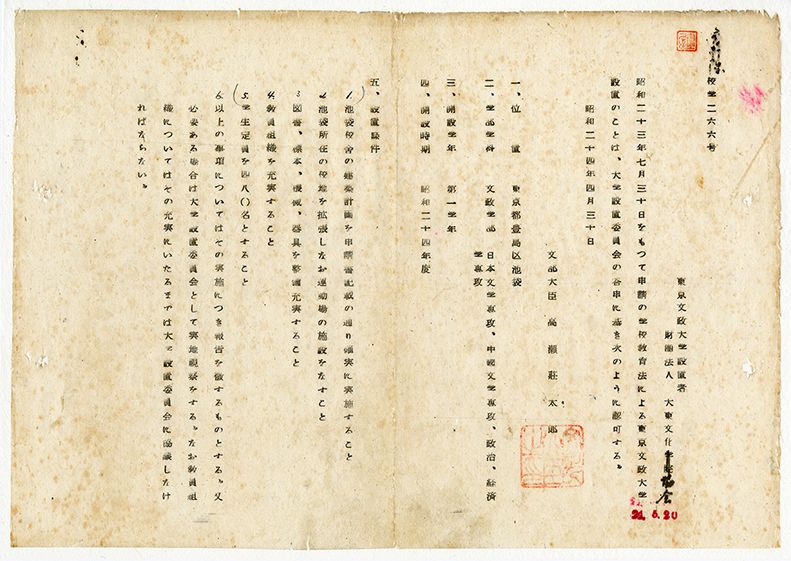 校学二六六号
東京文政大学設置者
財団法人 大東文化学院
協会
昭和二十三年七月三十日をもつて申請の学校教育法による東京文政大学
設置のことは、大学設置委員会の答申に基き次のように認可する。
昭和二十四年四月三十日
文部大臣 高瀬荘太郎
一、位置 東京都豊島区池袋
二、学部学科 文政学部 日本文学専攻、中国文学専攻、政治、経済
学専攻
三、開設学年 第一学年
四、開設時期 昭和二十四年度
五、設置条件
1.池袋校舎の建築計画を申請書記載の通り確実に実施すること
2.池袋所在の校地を拡張しなお運動場の施設をなすこと
3.図書、標本、機械、器具を整備充実すること
4.教員組織を充実すること
5.学生定員を四八〇名とすること
6.以上の事項についてはその実施につき報告を徴するものとする。又
必要ある場合は大学設置委員会として実地視察をする。なお教員組
織についてはその充実にいたるまでは大学設置委員会に協議しなけ
ればならない。
24.5.20